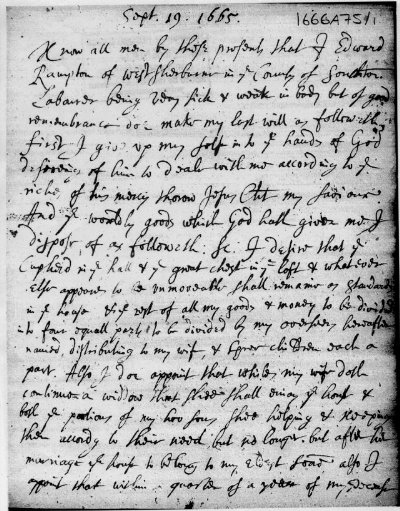 Sept. 19. 1665.
1666A75/1
Know all men by these presents that I Edward
Rampton of West Sherburne in ye County of Southton
Labourer being very sick & weak in body but of good
remembrance doe make my last will as followeth
first I give up my self into ye hands of God
desireing of him to deale with me according to ye
riches of his mercy thorow Jesus Christ my Saviour
And ye worldly goods which God hath given me I
dispose of as followeth: I desire that ye
Cupberd in ye hall & ye great chest in ye loft & whatever
Else appeares to be unmoveable shall remaine as Standards
in ye house & ye rest of all my goods & money to be divided
into four equall parts to be divided by my overseers hereafter
named, distributing to my wife, & three children each a
part. Also I doe appoint that whiles my wife doth
continue a widdow that shee shall enioy ye house &
both ye portions of my two sons, shee helping & keeping
them accordg to their need but no longer, but after her
marriage ye house to belong to my eldest sone also I
apoint that within a quarter of a yeare of my decease